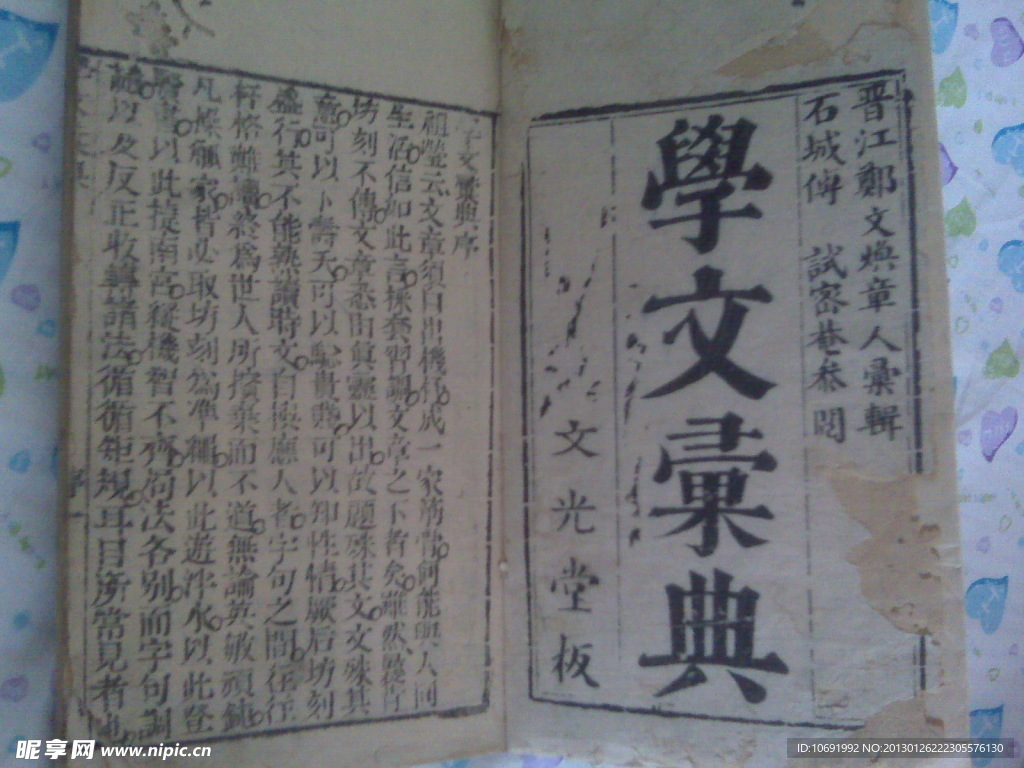 晋江鄭文煥章人彙輯
石城傅 試密巷叅閱
學文彙典
文光堂板
學文彙典序
祖瑩云文章須自出機杼成一家 能與人同
生活信如此言 套習調文章之下者矣雖然 
坊刻不傳文章悉由真靈以出故顧殊其文文殊其
意可以卜壽夭可以 貴賤可以知性情厥后坊刻
盛行其不能熟讀時文自換應人者字句之間往往
杆格難讀終為世人所撥棄而不道無論英敏頑鈍
凡操觚家皆必取坊刻為準繩以此遊泮水以此登
賢書以此捷南宮縱機智不齊句法各別而字句調
以及反正收轉諸法循循矩規耳目所常見者也
序 一
昵享网 www.nipic.cn
ID:10691992 NO:20130126222305576130